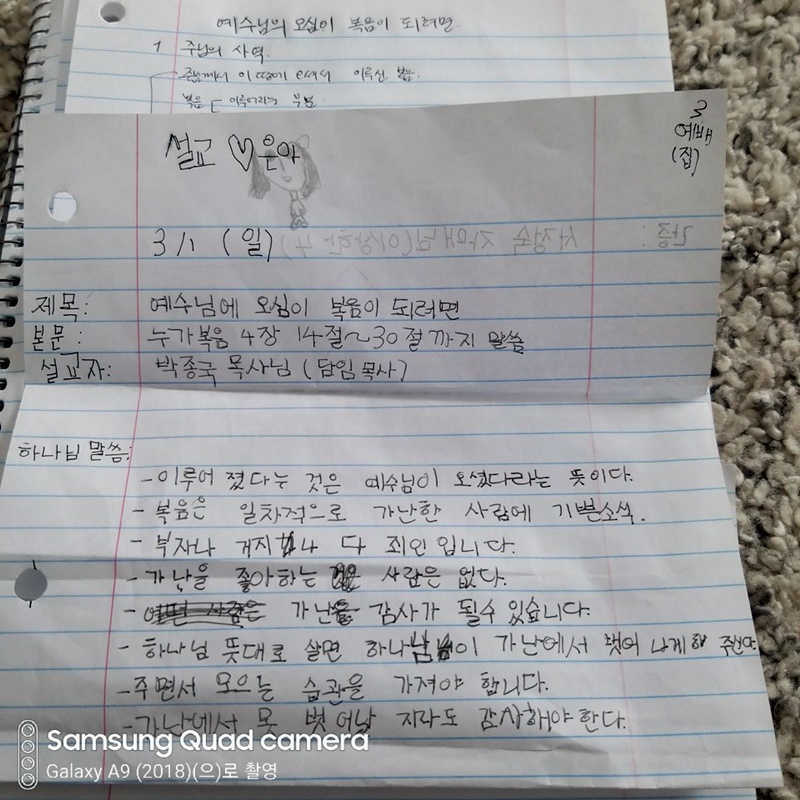 예수님의 오심이 복음이 되려면
1 주님의 사역.
주님께서 이 땅에 오셔서 이루신 복음.
복음
설교 ♡은아
3
예배
(집)
3/1 (일)
간증:
제목: 예수님에 오심이 복음이 되려면
본문: 누가복음 4장 14절~30절 까지 말씀
설교자: 박종국 목사님 (담임 목사)
하나님 말씀:
- 이루어 졌다는 것은 예수님이 오셨다라는 뜻이다.
- 복음은 일차적으로 가난한 사람에 기쁜소식.
- 부자나 거지나 다 죄인 입니다.
- 가난을 좋아하는 사람은 없다.
- 가난은 감사가 될수 있습니다.
- 하나님 뜻대로 살면 하나님이 가난에서 벗어 나게 해 주신다.
- 주면서 모으는 습관을 가져야 합니다.
- 가난에서 못 벗어날 지라도 감사해야 한다.
Samsung Quad camera
Galaxy A9 (2018)(으)로 촬영